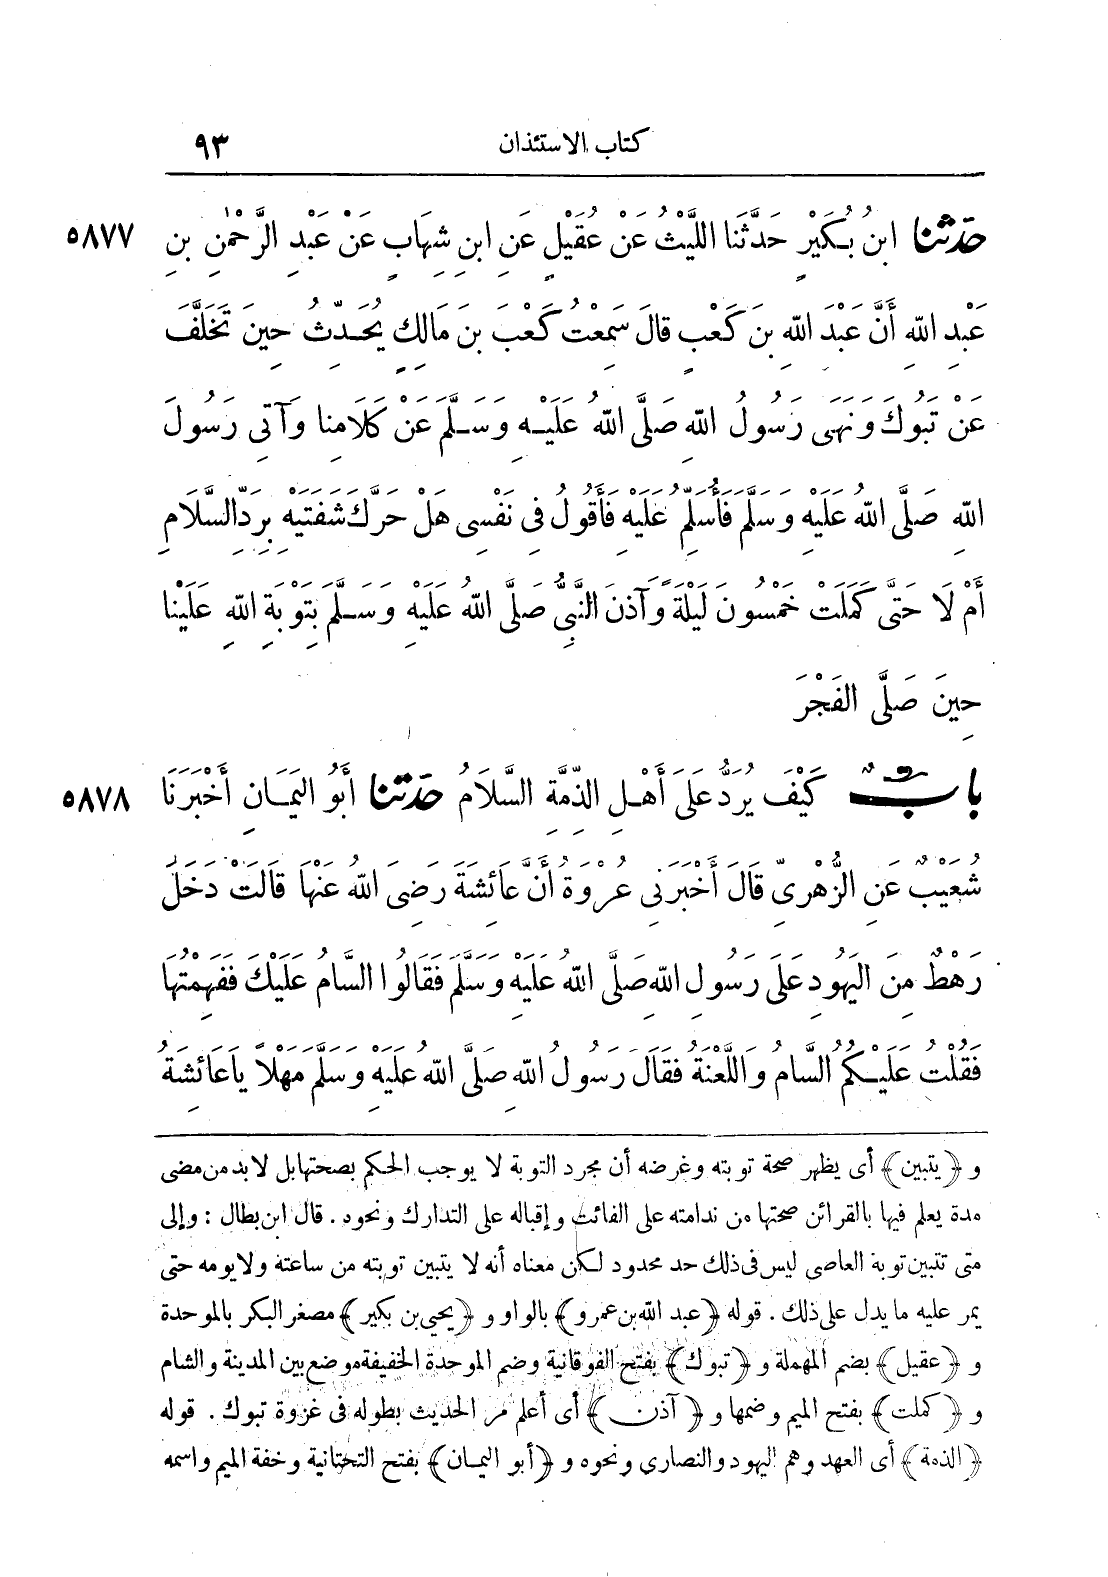 كتاب الاستئذان ٩٣
٥٨٧٧ حَدَّثَنَا ابنُ بُكَيْرٍ حَدَّثَنَا اللَّيْثُ عَنْ عُقَيْلٍ عَنِ ابنِ شِهَابٍ عَنْ عَبْدِ الرَّحْمٰنِ بنِ
عَبْدِ اللهِ أَنَّ عَبْدَ اللهِ بنَ كَعْبٍ قالَ سَمِعْتُ كَعْبَ بنَ مَالِكٍ يُحَدِّثُ حِينَ تَخَلَّفَ
عَنْ تَبُوكَ وَنَهَى رَسُولُ اللهِ صَلَّى اللهُ عَلَيْهِ وَسَلَّمَ عَنْ كَلَامِنا وَآتِى رَسُولَ
اللهِ صَلَّى اللهُ عَلَيْهِ وَسَلَّمَ فَأُسَلِّمُ عَلَيْهِ فَأَقُولُ فِى نَفْسِى هَلْ حَرَّكَ شَفَتَيْهِ بِرَدِّ السَّلَامِ
أَمْ لَا حَتَّى كَمَلَتْ خَمْسُونَ لَيْلَةً وَآذَنَ النَّبِيُّ صَلَّى اللهُ عَلَيْهِ وَسَلَّمَ بِتَوْبَةِ اللهِ عَلَيْنا
حِينَ صَلَّى الفَجْرَ
٥٨٧٨ بابٌ كَيْفَ يُرَدُّ عَلَى أَهْلِ الذِّمَّةِ السَّلَامُ حَدَّثَنَا أَبُو اليَمَانِ أَخْبَرَنَا
شُعَيْبٌ عَنِ الزُّهْرِيِّ قَالَ أَخْبَرَنِى عُرْوَةُ أَنَّ عَائِشَةَ رَضِىَ اللهُ عَنْهَا قَالَتْ دَخَلَ
رَهْطٌ مِنَ اليَهُودِ عَلَى رَسُولِ اللهِ صَلَّى اللهُ عَلَيْهِ وَسَلَّمَ فَقَالُوا السَّامُ عَلَيْكَ فَفَهِمْتُهَا
فَقُلْتُ عَلَيْكُمُ السَّامُ وَاللَّعْنَةُ فَقَالَ رَسُولُ اللهِ صَلَّى اللهُ عَلَيْهِ وَسَلَّمَ مَهْلًا يَا عَائِشَةُ
و ﴿يتبين﴾ أى يظهر صحة توبته وغرضه أن مجرد التوبة لا يوجب الحكم بصحتها بل لابد من مضى
مدة يعلم فيها بالقرائن صحتها من ندامته على الفائت وإقباله على التدارك ونحوه . قال ابن بطال : وإلى
متى تتبين توبة العاصى ليس فى ذلك حد محدود لكن معناه أنه لا يتبين توبته من ساعته ولا يومه حتى
يمر عليه ما يدل على ذلك . قوله ﴿عبد الله بن عمرو﴾ بالواو و ﴿يحيى بن بكير﴾ مصغر البكر بالموحدة
و ﴿عقيل﴾ بضم المهملة و ﴿تبوك﴾ بفتح الفوقانية وضم الموحدة الخفيفة موضع بين المدينة والشام
و ﴿كملت﴾ بفتح الميم وضمها و ﴿آذن﴾ أى أعلم مر الحديث بطوله فى غزوة تبوك . قوله
﴿الذمة﴾ أى العهد وهم اليهود والنصارى ونحوه و ﴿أبو اليمان﴾ بفتح التحتانية وخفة الميم واسمه